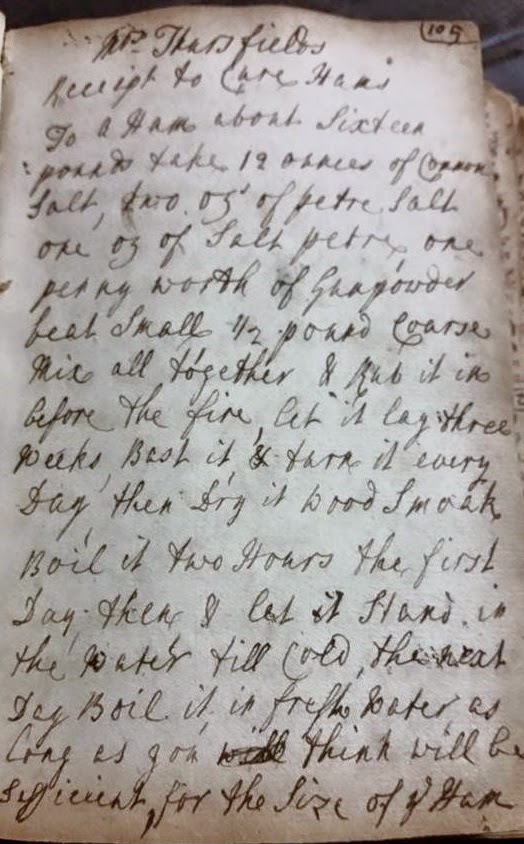 105
Mrs. Thursfields
Receipt to Cure Hams
To a Ham about Sixteen
pounds take 12 ounces of Common
Salt, two oz of petre Salt
one oz of Salt petre, one
penny worth of Gunpowder
beat Small 1/2 pound Coarse
Mix all together & Rub it in
before the fire, let it lay three
Weeks, Bast it & turn it every
Day then Dry it Wood Smoak
Boil it two Hours the first
Day then & let it Stand in
the Water till Cold, the next
Day Boil it in fresh Water as
long as you think will be
Sufficient, for the Size of ye Ham